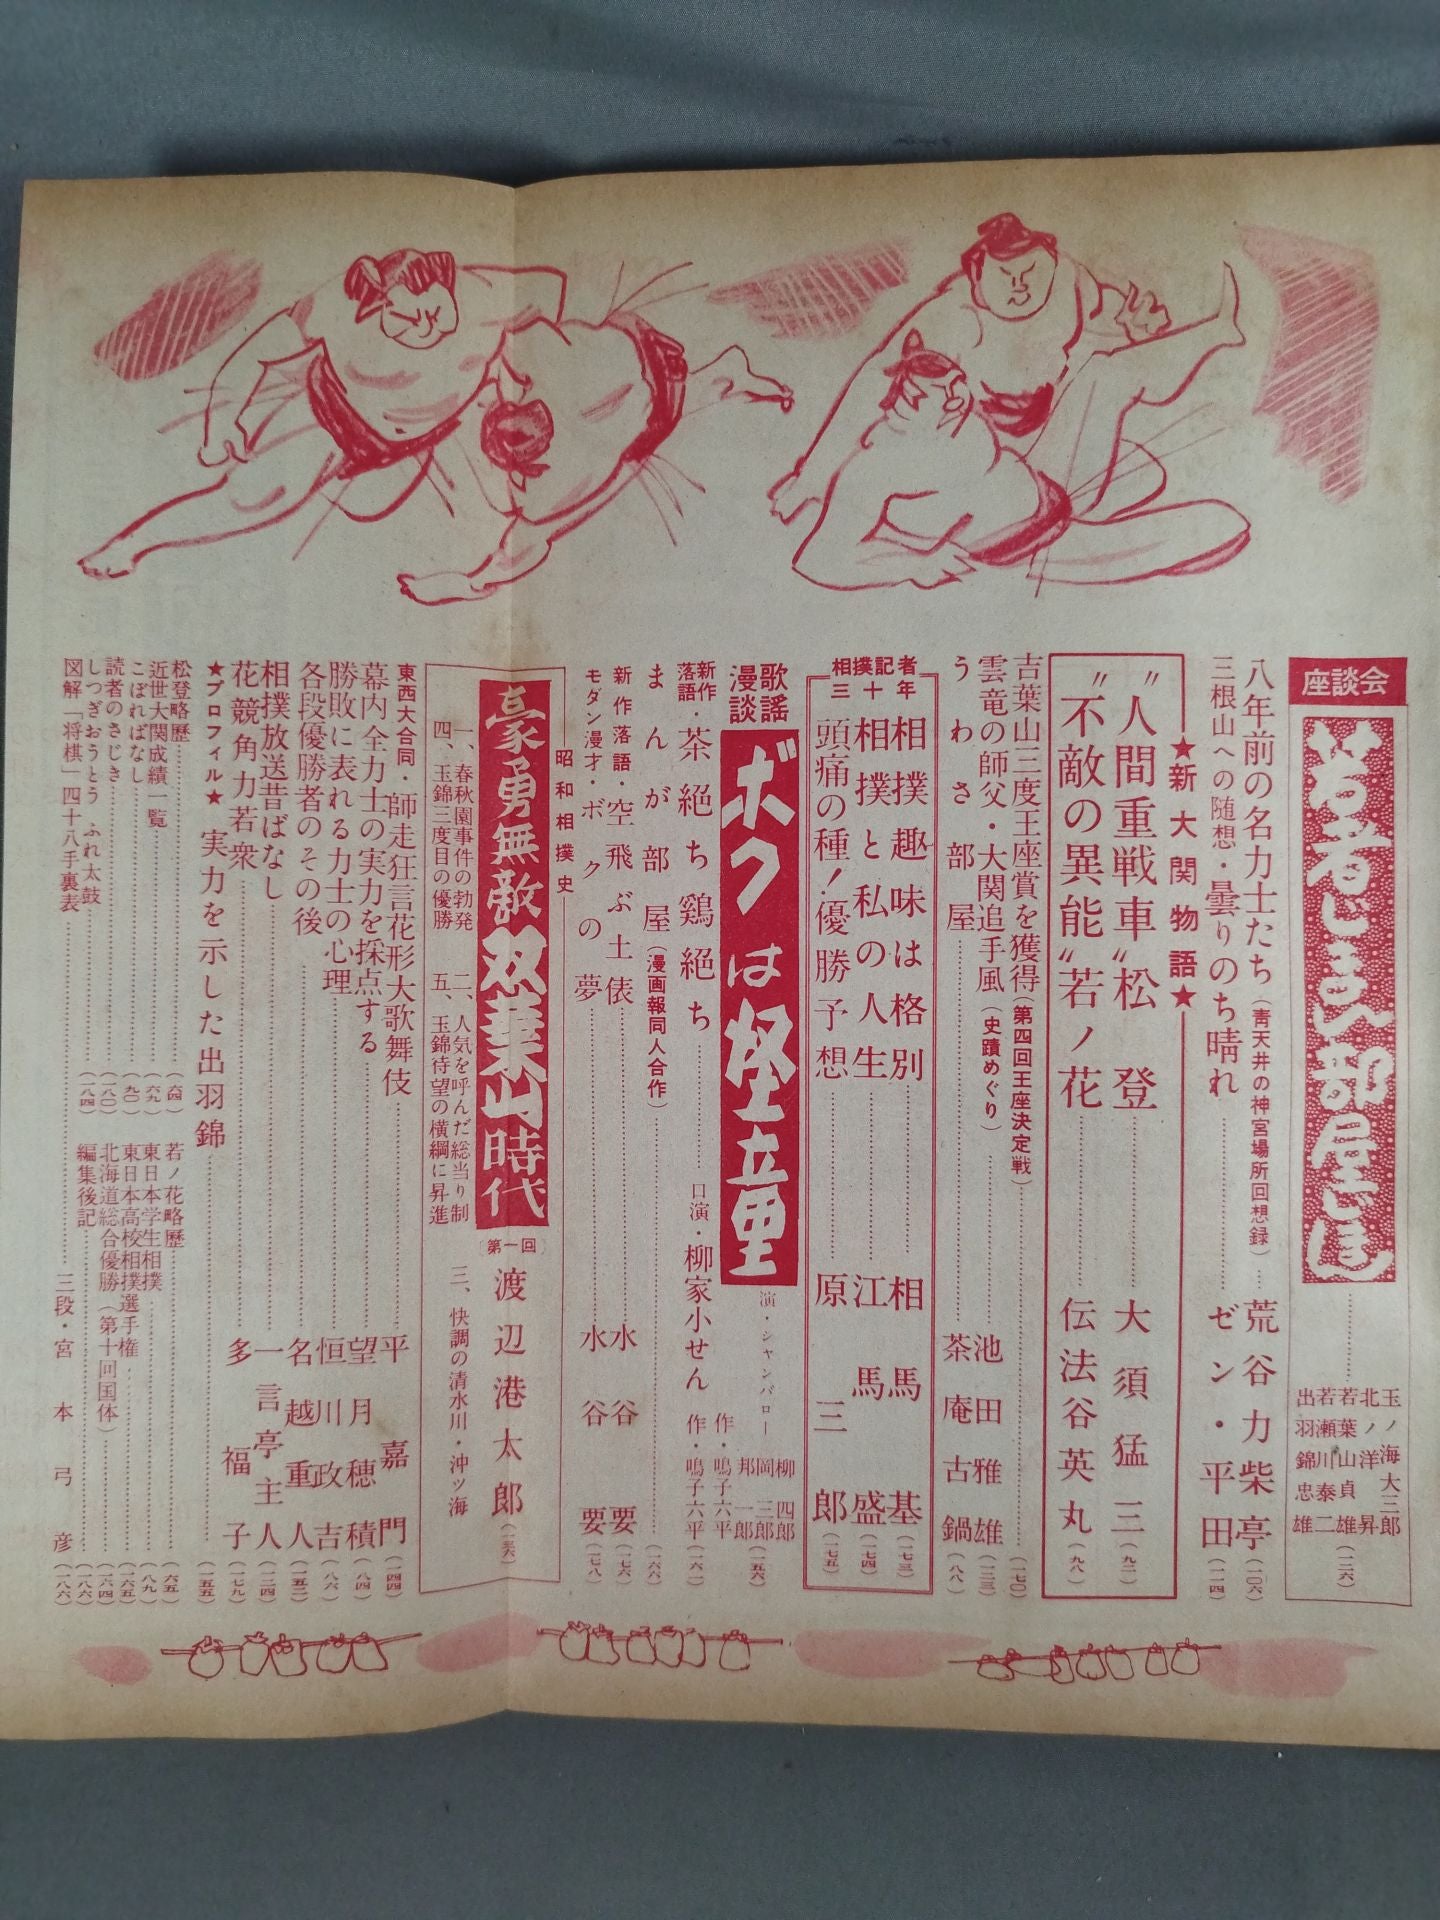 座談会
若者じまん部屋じまん
玉ノ海大三郎
北ノ洋昇
若葉山貞雄
若瀬川泰二
出羽錦忠雄
(一二六)
八年前の名力士たち(青天井の神宮場所回想録)
荒谷力柴亭(一〇六)
三根山への随想・曇りのち晴れ
ゼン・平田(一一四)
★新大関物語★
“人間重戦車”松登
大須猛三(九二)
“不敵の異能”若ノ花
伝法谷英丸(九八)
吉葉山三度王座賞を獲得(第四回王座決定戦)
(一七〇)
雲竜の師父・大関追手風(史蹟めぐり)
池田雅雄(一三三)
うわさ部屋
茶庵古鍋(八八)
相撲記者三十年
相撲趣味は格別
相馬基(一七三)
相撲と私の人生
江馬盛(一七四)
頭痛の種!優勝予想
原三郎(一七五)
歌謡漫談
ボクは怪童
演・シャンバロー
柳四郎
岡三郎
邦一郎
(一五六)
作・鳴子六平
新作落語・茶絶ち鶏絶ち
口演・柳家小せん
作・鳴子六平(一六二)
まんが部屋(漫画報同人合作)
(一六六)
新作落語・空飛ぶ土俵
水谷要(一七六)
モダン漫才・ボクの夢
水谷要(一七八)
昭和相撲史
豪勇無敵双葉山時代
(第一回)
渡辺港太郎(三六)
一、春秋園事件の勃発
二、人気を呼んだ総当り制
三、快調の清水川・沖ツ海
四、玉錦三度目の優勝
五、玉錦待望の横綱に昇進
東西大合同・師走狂言花形大歌舞伎
平嘉門(一四四)
幕内全力士の実力を採点する
望月穂積(八四)
勝敗に表れる力士の心理
恒川政吉(八六)
各段優勝者のその後
名越重人(一五二)
相撲放送昔ばなし
一言亭主人(一二四)
花競角力若衆
多福子(一七九)
★プロフィル★ 実力を示した出羽錦
(一五五)
松登略歴(六四)
若ノ花略歴(六五)
近世大関成績一覧(六九)
東日本学生相撲(八九)
こぼればなし(九〇)
東日本高校相撲選手権(一六五)
読者のさじき(一八〇)
北海道総合優勝(第十回国体)(一六四)
しつぎおうとう ふれ太鼓(一八四)
編集後記(一八六)
図解「将棋」四十八手裏表
三段・宮本弓彦(一八六)